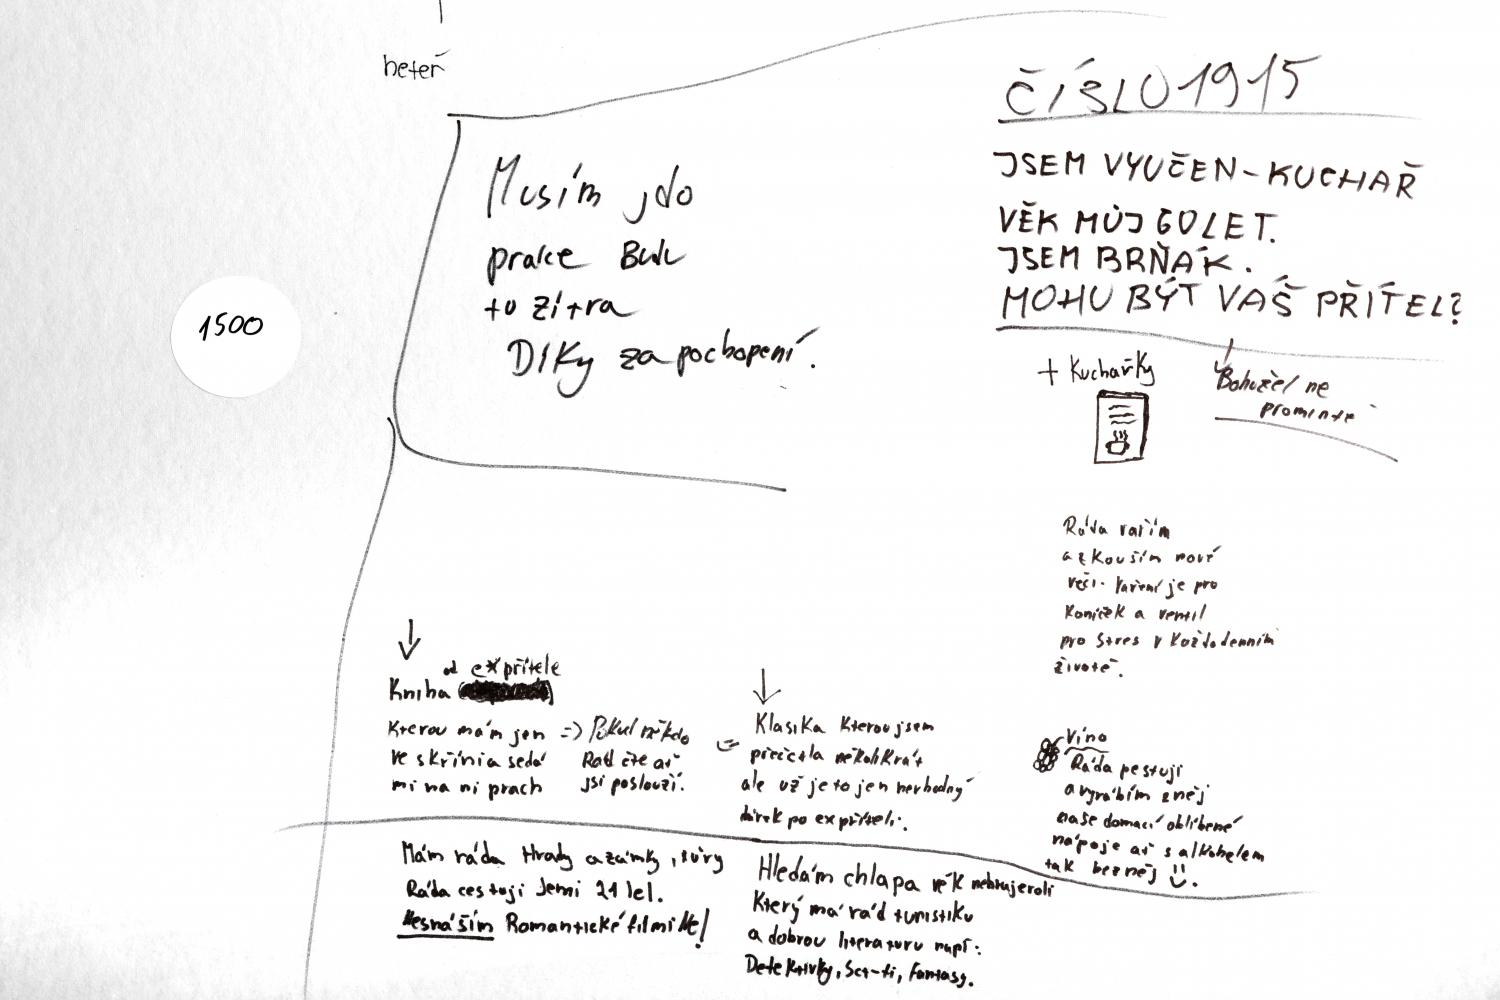 heteř
ČÍSLO 1915
JSEM VYUČEN - KUCHAŘ
VĚK MŮJ 60 LET.
JSEM BRŇÁK.
MOHU BÝT VÁŠ PŘÍTEL?
Musím jdo
prace Budu
tu zítra
Díky za pochopení.
1500
+ Kuchařky
Bohužel ne
promiňte
Ráda vařím
a zkouším nové
věci. Vaření je pro
koníček a ventil
pro stres v každodenním
životě.
od expřítele
Kniha
kterou mám jen
ve skřínia sedá
mi na ni prach
=> Pokud někdo
Rád čte ať
jsi poslouží.
Klasika kterou jsem
přečetla několikrát
ale už je to jen nevhodný
dárek po expříteli.
Víno
Ráda pestuji
a vyrábím z něj
naše domací oblíbené
nápoje ať s alkohelem
tak bez něj
Mám ráda Hrady a zámky, túry
Ráda cestuji Jemi 21 let.
Nesnáším Romantické filmi Ne!
Hledám chlapa věk nehraje roli
Který má rád turistiku
a dobrou literaturu např:
Detektivky, Sci-fi, Fantasy.